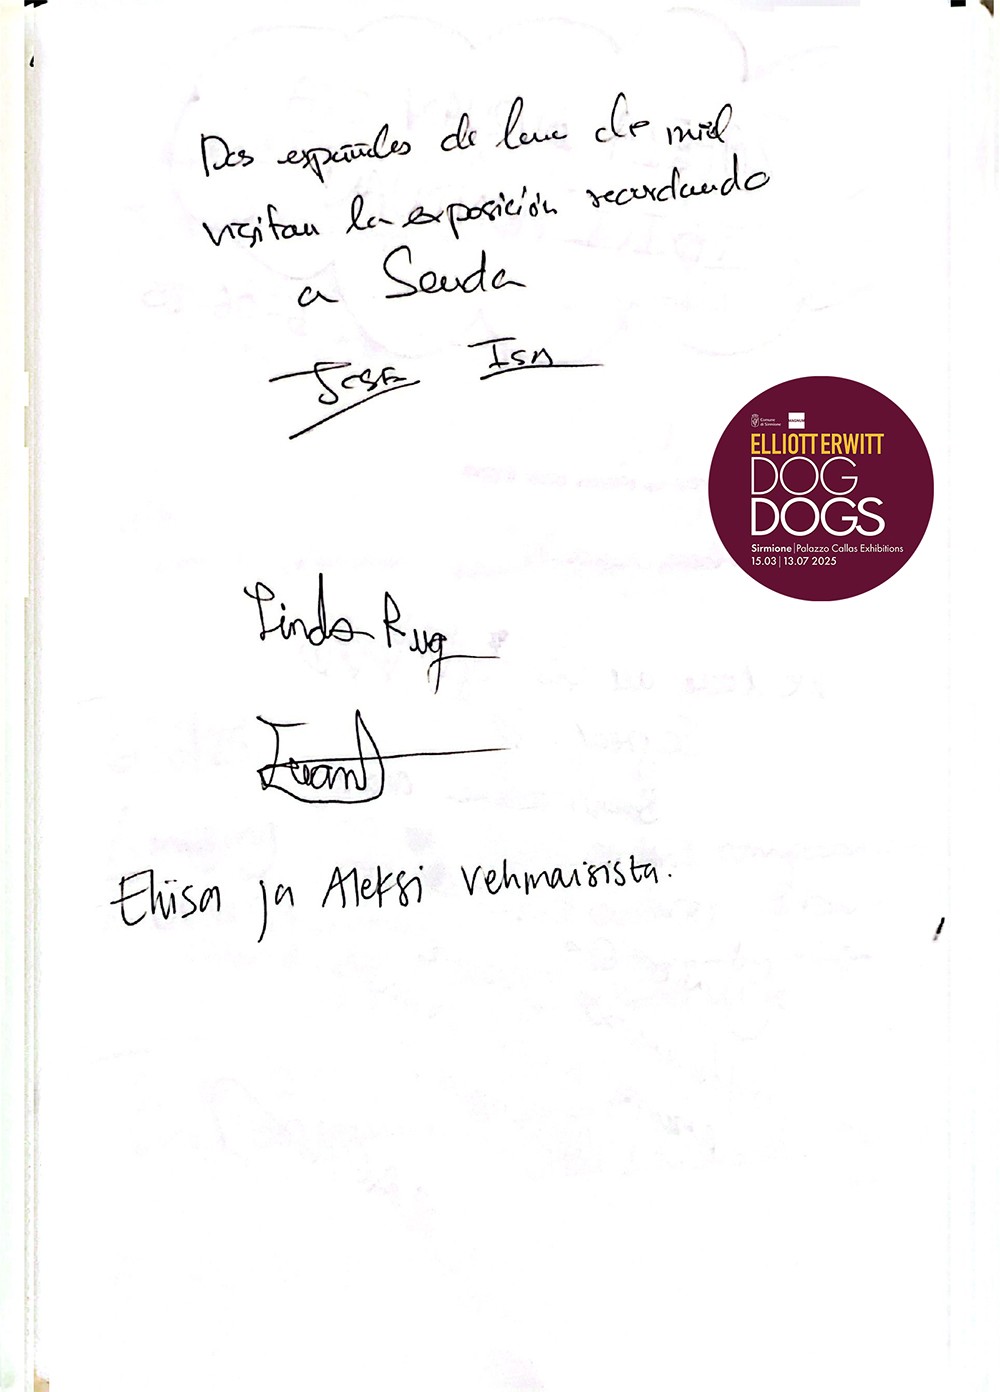 Dos españoles de luna de miel
visitan la exposición recordando
a Senda
JOSE ISA
Comune
di Sirmione
MAGNUM
ELLIOTT ERWITT
DOG
DOGS
Sirmione | Palazzo Callas Exhibitions
15.03 | 13.07 2025
Linda Rug
Ivan
Eliisa ja Aleksi Vehmaisista.